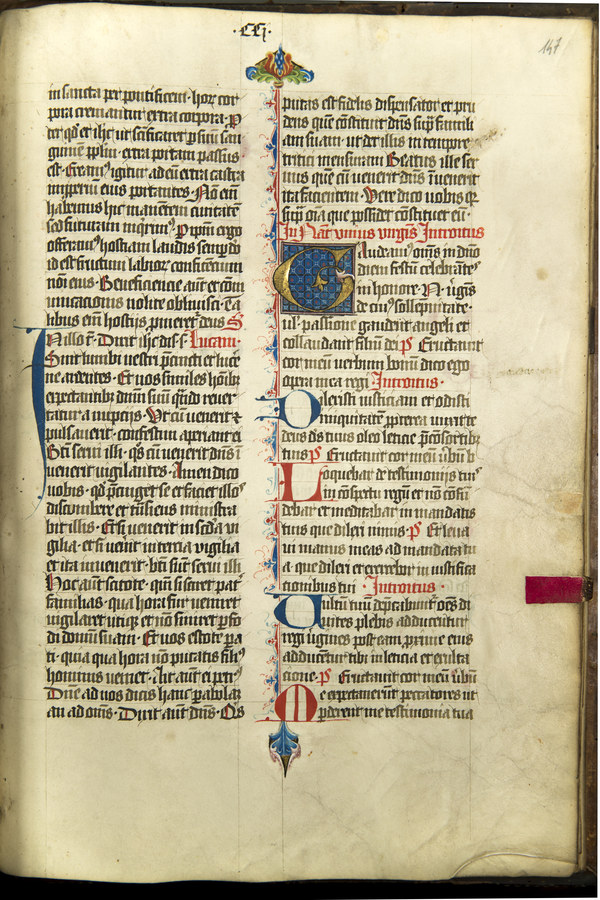 ·CCi·
147
in sancta per pontificem · hoꝝ cor
pora cremantur extra
guinē pplm · extra portam passus
est · Exeamꝰ igitur ad eū extra castra
imꝓperiū eius portantes · Nō em̄
habemus hic manentem ciuitatē
sed futuram inqrimꝰ · P ipm ergo
offeramꝰ hostiam laudis semp do
id est fructum labioꝝ confitentium
noī eius · Beneficiencie aūt et cōm
unicacionis nolite obliuisci · ta
libus em̄ hostijs deus S
In illo t̄ · Dixit ihc dis · s · Lucam ·
Sint lumbi vestri p̄cincti et lucer
ne ardentes · Et vos similes hoībꝫ
expectantibꝫ dnm suū qn̄do reuer
tatur a nupcijs · Vt cū venerit ⁊
pulsauerit · confestim aperiant ei
Bti serui illi · qs cū venerit dns i
uenerit vigilantes · Amen dico
vobis · qd p̄cinget se et faciet illos
discumbere et trāsiens ministra
bit illis · Et si venerit in scda vi
gilia · et si venit in tercia vigilia
et ita inuenerit · bti sunt serui illi
Hoc aūt scitote · qm̄ si sciret pat
familias · qua hora fur veniret
vigilaret vtiqꝫ et nō sineret pfo
di domū suam · Et vos estote pa
ti · quia qua hora nō putatis fili
hominis veniet · Ait aūt ei petrꝰ
Dne ad nos dicis hanc pabolaꝫ
an ad oms · Dixit aūt dns · Qs
putas est fidelis dispensator et pru
dens que cōstituit dns sup famili
am suam · ut det illis in tempore
tritici mensuram Beatus ille ser
uus que cū venerit dns īuenerit
ita facientem · Vere dico vobis qꝛ
sup oīa que possidet cōstituet eū ·
In Nat vnius virgīs Introitus
Gaudeamꝰ oms in dno
diem festū celebrātes
in honore · N · v̄gīs
de cuiꝰ sollepnitate ·
ul passione gaudent angeli et
collaudant filiū dei ps Eructauit
cor meū verbum bonū dico ego
opera mea regi Introitus ·
Dilexisti iusticiam et odisti
iniquitatē ppterea vnxit te
deus ds tuus oleo leticie p̄ cōsortibꝫ
tuis ps Eructauit cor meū ūbū b
Loquebar de testimonijs tuis
in cōspectu regū et nō cōfū
debar et meditabar in mandatis
tuis que dilexi nimis · ps Et leua
ui manus meas ad mandata tu
a · que dilexi et exercebor in iustifica
tionibus tuis · Introitus ·
Vultū tuū dep̄cabunt oēs di
uites plebis adducentur
regi v̄gines post eam p̄xime eius
adducent tibi in leticia et exulta
cione · ps Eructauit cor meū ūbū
Me expectauerūt peccatores ut
pderent me testimonia tua